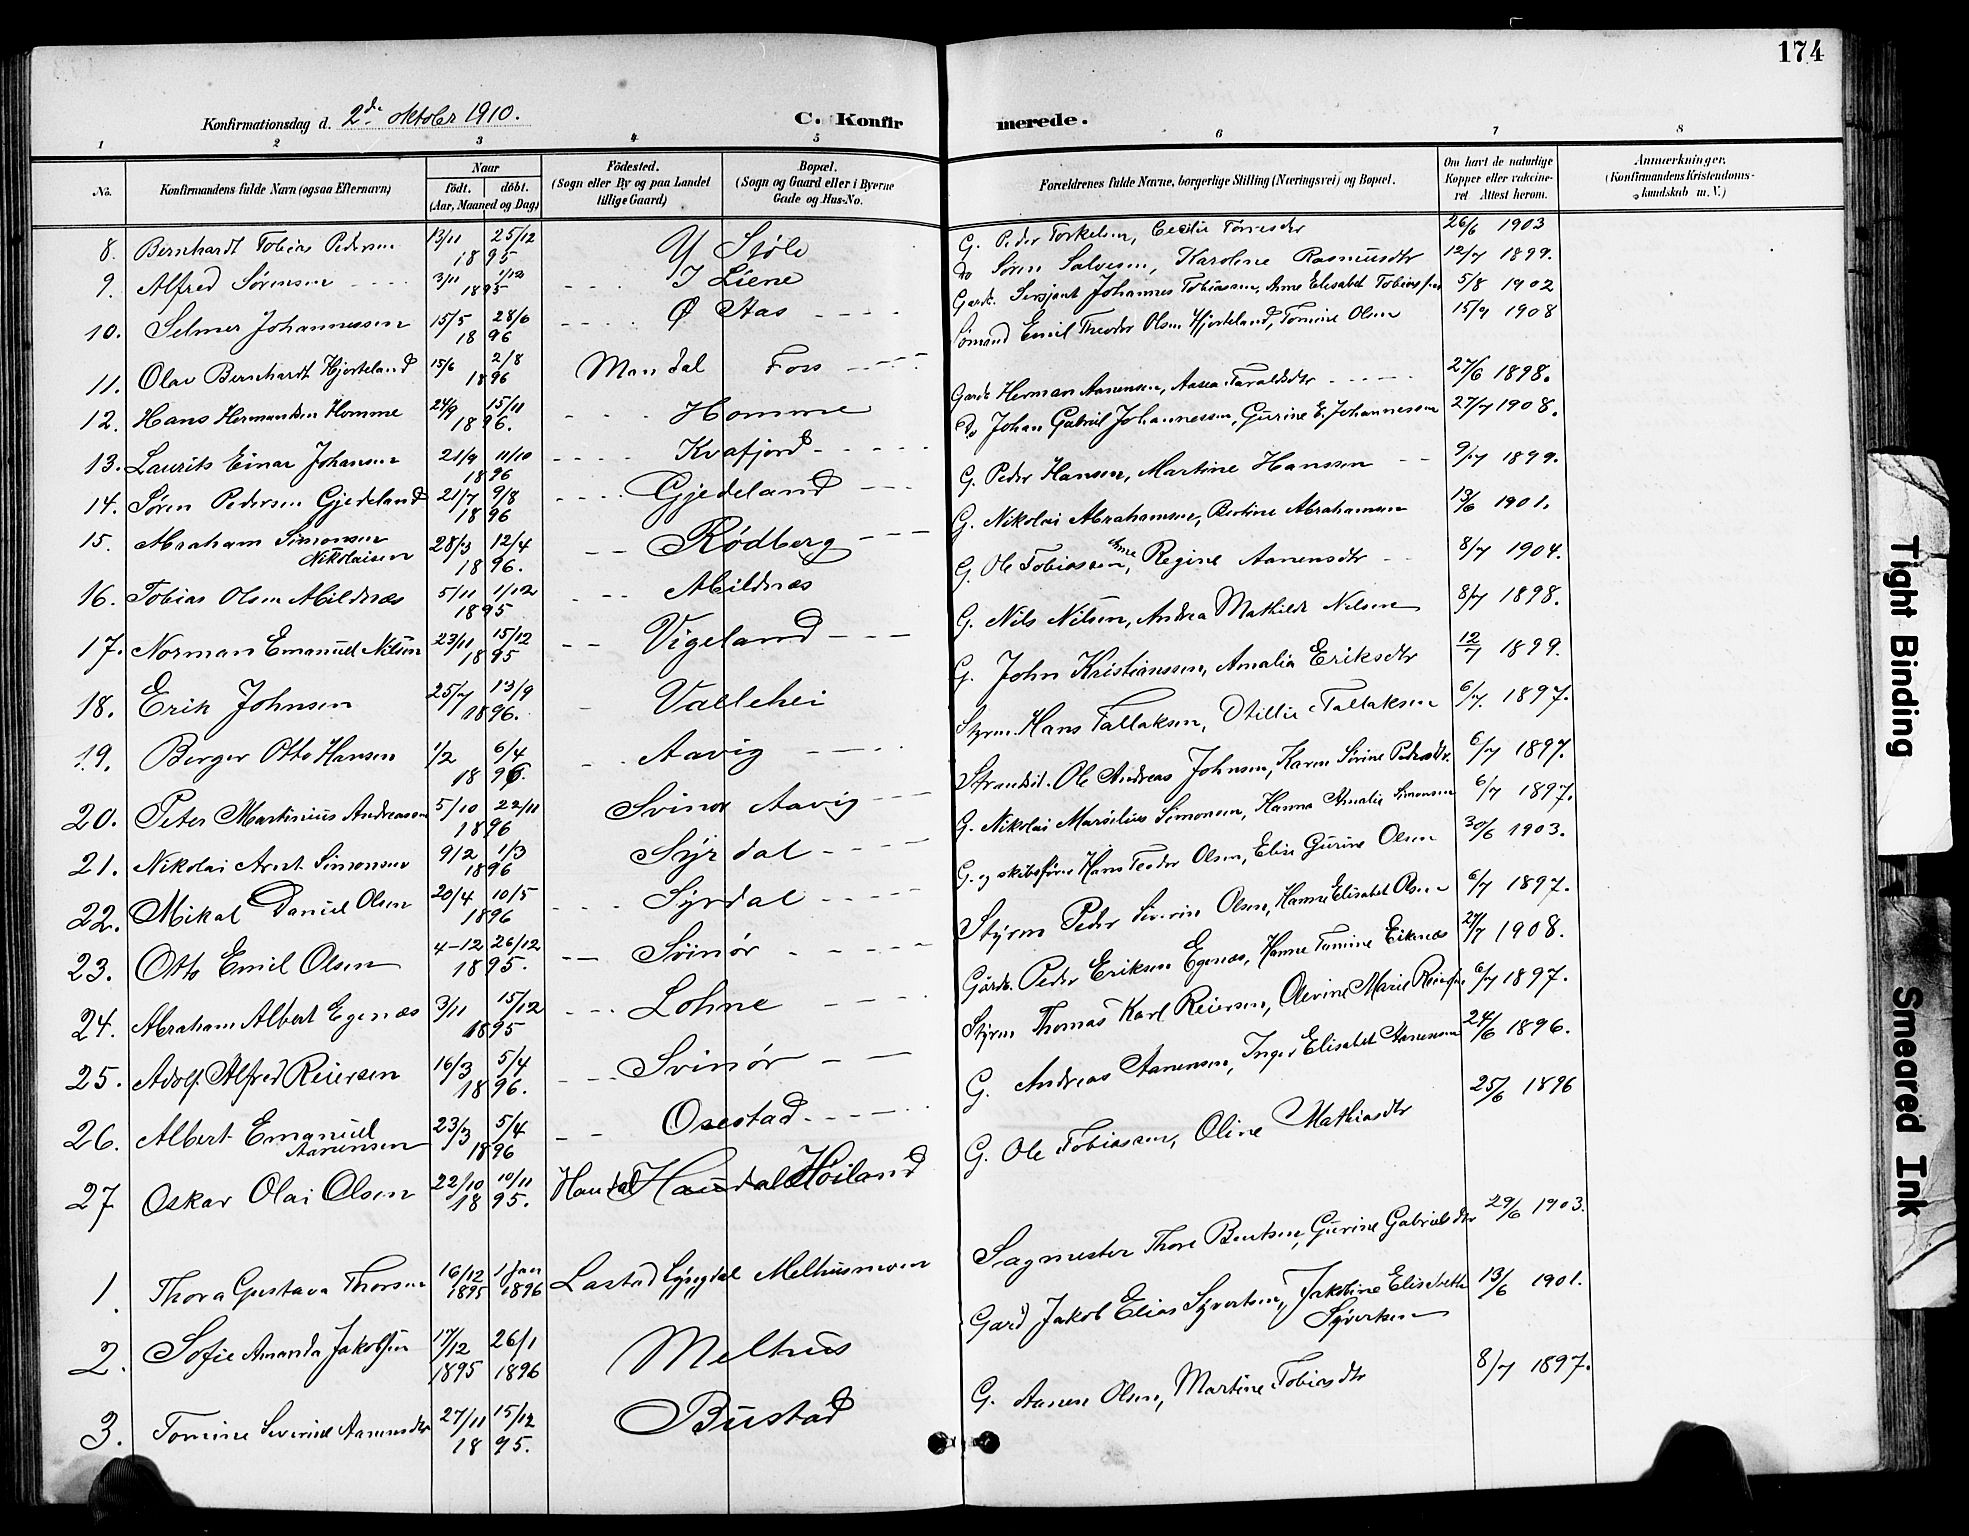 174
Konfirmationsdag d. 2de oktober 1910.
C. Konfirmerede.
1 2 3 4 5 6 7 8
No.
Konfirmandens fulde Navn (ogsaa Efternavn)
Naar
födt. döbt.
(Aar, Maaned og Dag)
Födested.
(Sogn eller By og paa Landet
tillige Gaard)
Bopæl.
(Sogn og Gaard eller i Byerne
Gade og Hus-No.
Forældrenes fulde Navne, borgerlige Stilling (Næringsvei) og Bopæl.
Om havt de naturlige
Kopper eller vakcine-
ret Attest herom.
Anmærkninger.
(Konfirmandens Kristendoms-
kundskab m. V.)
8. Bernhardt Tobias Pedersen 13/11 25/12 1895 Y Stöle G. Peder Torkelsen, Cecilie Torresdtr 26/6 1903
9. Alfred Sørensen 3/11 1/12 1895 I Liene do Søren Salvesen, Karoline Rasmusdtr 12/7 1899.
10. Selmer Johannessen 15/5 28/6 1896 Ø Aas Gardb. Sersjant Johannes Tobiassen, Anne Elisabet Tobias 5/8 1902
11. Olav Bernhardt Hjorteland 15/6 2/8 1896 Mandal Foss Sømand Emil Theodor Olsen Hjorteland, Tomine Olsen 15/7 1908
12. Hans Hermandsen Homme 24/9 15/11 1896. Homme Gardb Herman Aanensen, Aasea Taraldsdtr 27/6 1898.
13. Laurits Einar Johansen 21/9 11/10 1896 Kvafjord do Johan Gabriel Johannessen, Gurine E. Johannessen 27/7 1908.
14. Søren Pedersen Gjedeland 21/7 9/8 1896 Gjedeland G. Peder Hansen, Martine Hanssen 9/7 1899.
15. Abraham Simonsen Nikolaisen 28/3 12/4 1896. Rødberg G. Nikolai Abrahamsen, Bertine Abrahamsen 13/6 1901.
16. Tobias Olsen Abildnæs 5/11 1/12 1895 Abildnæs G. Ole Tobiassen, Anne Regine Aanensdtr 8/7 1904.
17. Norman Emanuel Nilsen 23/11 15/12 1895 Vigeland G. Nils Nilsen, Andrea Mathilde Nilsen 8/7 1898.
18. Erik Johnsen 25/7 13/9 1896. Vallehei G. John Kristianssen, Amalia Eriksdtr 12/7 1899.
19. Berger Otto Hansen 1/2 6/4 1896. Aavig Styrm Hans Tallaksen, Otillie Tallaksen 6/7. 1897.
20. Peter Martinius Andreassen 5/10 22/11 1896 Svinør Aavig Strandsid. Ole Andreas Johnsen, Karen Sørine Pedersdtr. 6/7 1897.
21. Nikolai Arnt Simonsen 9/2 1/3 1896 Syrdal G. Nikolai Marselius Simonsen, Hanna Amalie Simonsen 6/7 1897.
22. Mikal Daniel Olsen 20/4 10/5 1896 Syrdal G. og skibsfører Hans Teodor Olsen, Elise Gurine Olsen 30/6 1903.
23. Otto Emil Olsen 4-12 26/12 1895. Svinør Styrm Peder Severin Olsen, Hanne Elisabet Olsen 6/7 1897.
24. Abraham Albert Egenæs 3/11 15/12 1895 Lohne Gårdb. Peder Eriksen Egenæs, Hanne Tomine Eikenæs 27/7 1908.
25. Adolf Alfred Reiersen 16/3 5/4 1896. Svinør Styrm Thomas Karl Reiersen, Olevine Marie 6/7 1897.
26. Albert Emanuel Aanensen 23/3 5/4 1896 Osestad G. Andreas Aanensen, Inger Elisabet Aanensen 24/6 1896.
27 Oskar Olai Olsen 22/10 10/11 1895. Haudal Høiland G. Ole Tobiassen, Oline Mathiasdtr 25/6 1896
1. Thora Gustava Thorsen 16/12 1895 1 Jan 1896 Lastad Lyngdal Melhusmoen Sagmester Thore Bentsen, Gurine Gabrielsdtr 29/6 1903.
2. Sofie Amanda Jakobsen 17/12 1895 26/1 1896 Melhus Gard Jakob Elias Syvertsen, Jakobine Elisabeth Syvertsen 13/6 1901.
3. Tomine Severine Aanensdtr 27/11 15/12 1895. Bustad G. Aanen Olsen, Martine Tobiasdtr 8/7 1897.
Tight Binding
Smeared Ink